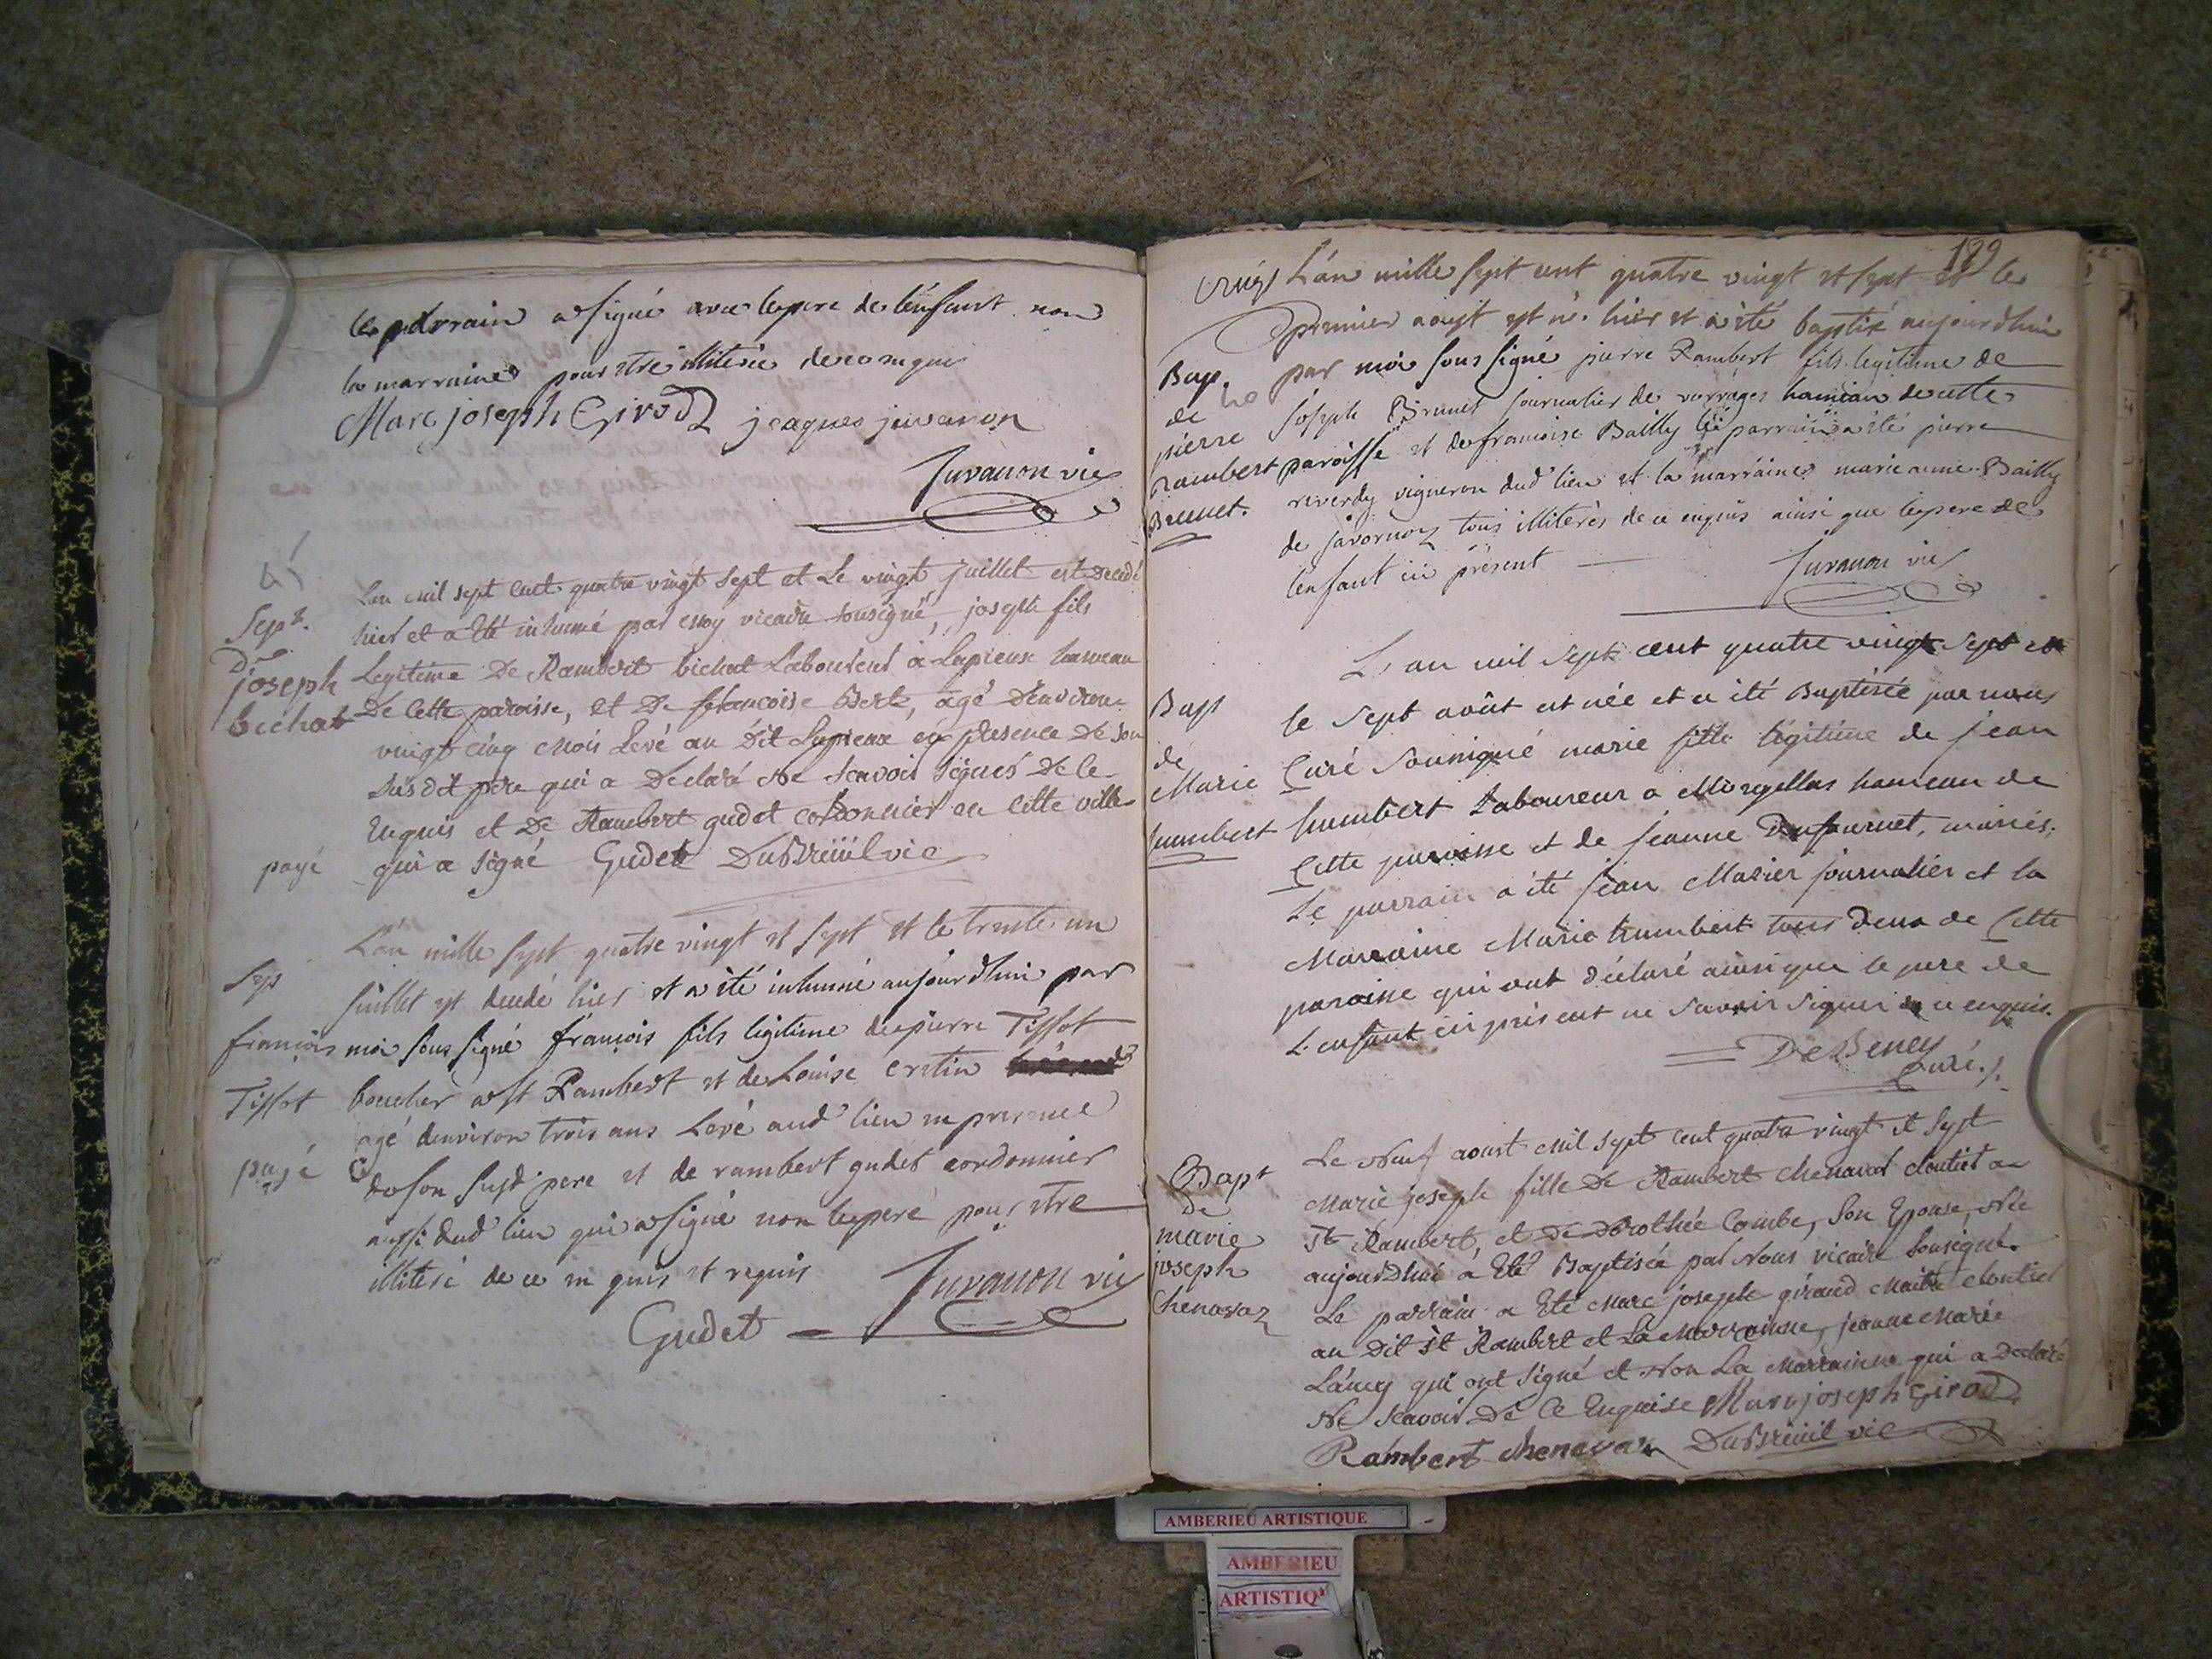 le parrain a signé avec le pere de lenfant non
la marraine pour etre illiterée de ce enquis
Marc joseph Girod jeaques juvanon
Juvanon vic
Sept.
De
joseph
bichat
payé
Lan mil sept cent quatre vingt sept et Le vingt juillet est decedé
hier et a Eté inhumé par moy vicaire sousigné, joseph fils
Legitime De Rambert bichat Laboureur a Lupieux hameau
De Cette paroisse, et De francoise Berte, agé Denviron
vingt cinq mois Levé au Dit Lupieux en presence De son
susdit pere qui a Declaré Ne scavoir signer De ce
Enquis et De Rambert gudet cordonnier en Cette ville
qui a signé Gudet DuBreüil vic
Sep
françois
Tissot
payé
L'an mille sept quatre vingt et sept et le trente un
juillet est decedé hier et a été inhumé aujourdhui par
moi sous signé françois fils legitime de pierre Tissot
boucher a st Rambert et de Louise cretin
agé denviron trois ans Levé aud lieu en presence
de son susd pere et de rambert gudet cordonnier
aussi dud lieu qui a signé non le pere pour etre
illiteré de ce en quis et requis Juvanon vic
Gudet
189
L'an mille sept cent quatre vingt et sept et le
premier aoust est né hier et a été baptisé aujourdhui
Bap.
de
pierre
rambert
Brunet.
par moi sous signé pierre Rambert fils legitime de
joseph Brunet journalier de vorrages hameau de cette
paroisse et de francoise Bailly le parrain a été pierre
reverdy vigneron dud lieu et la marraine marie anne Bailly
de javornoz tous illiterés de ce enquis ainsi que le pere de
lenfant ici présent Juvanon vic
Bap
de
Marie
humbert
L'an mil sept cent quatre vingt sept et
le sept août est née et a été Baptisée par nous
Curé soussigné marie fille légitime de jean
humbert Laboureur a Morgellas hameau de
Cette paroisse et de jeanne Dufournet, mariés.
Le parrain a été jean Marier journalier et la
Marraine Marie humbert tous deux de Cette
paroisse qui ont déclaré ainsi que le pere de
L'enfant ici présent ne savoir signer de ce enquis.
DeBeney
Curé.
Bapt
de
marie
joseph
Chenavaz
Le Neuf aoust mil sept cent quatre vingt et sept
Marie joseph fille De Rambert Chenavat cloutier a
St Rambert, et De Dorothée Combe, son Epouse, Née
aujourdhui a Eté Baptisée par Nous vicaire sousigné.
Le parrain a Eté Marc joseph giraud Maitre cloutier
au Dit St Rambert et La Marrainne, jeanne Marie
Lancy qui ont signé et Non La Marrainne qui a Declaré
Ne scavoir De Ce Enquise Marc joseph Girod
Rambert chenavaz DuBreüil vic
AMBERIEU ARTISTIQUE
AMBERIEU
ARTISTIQ